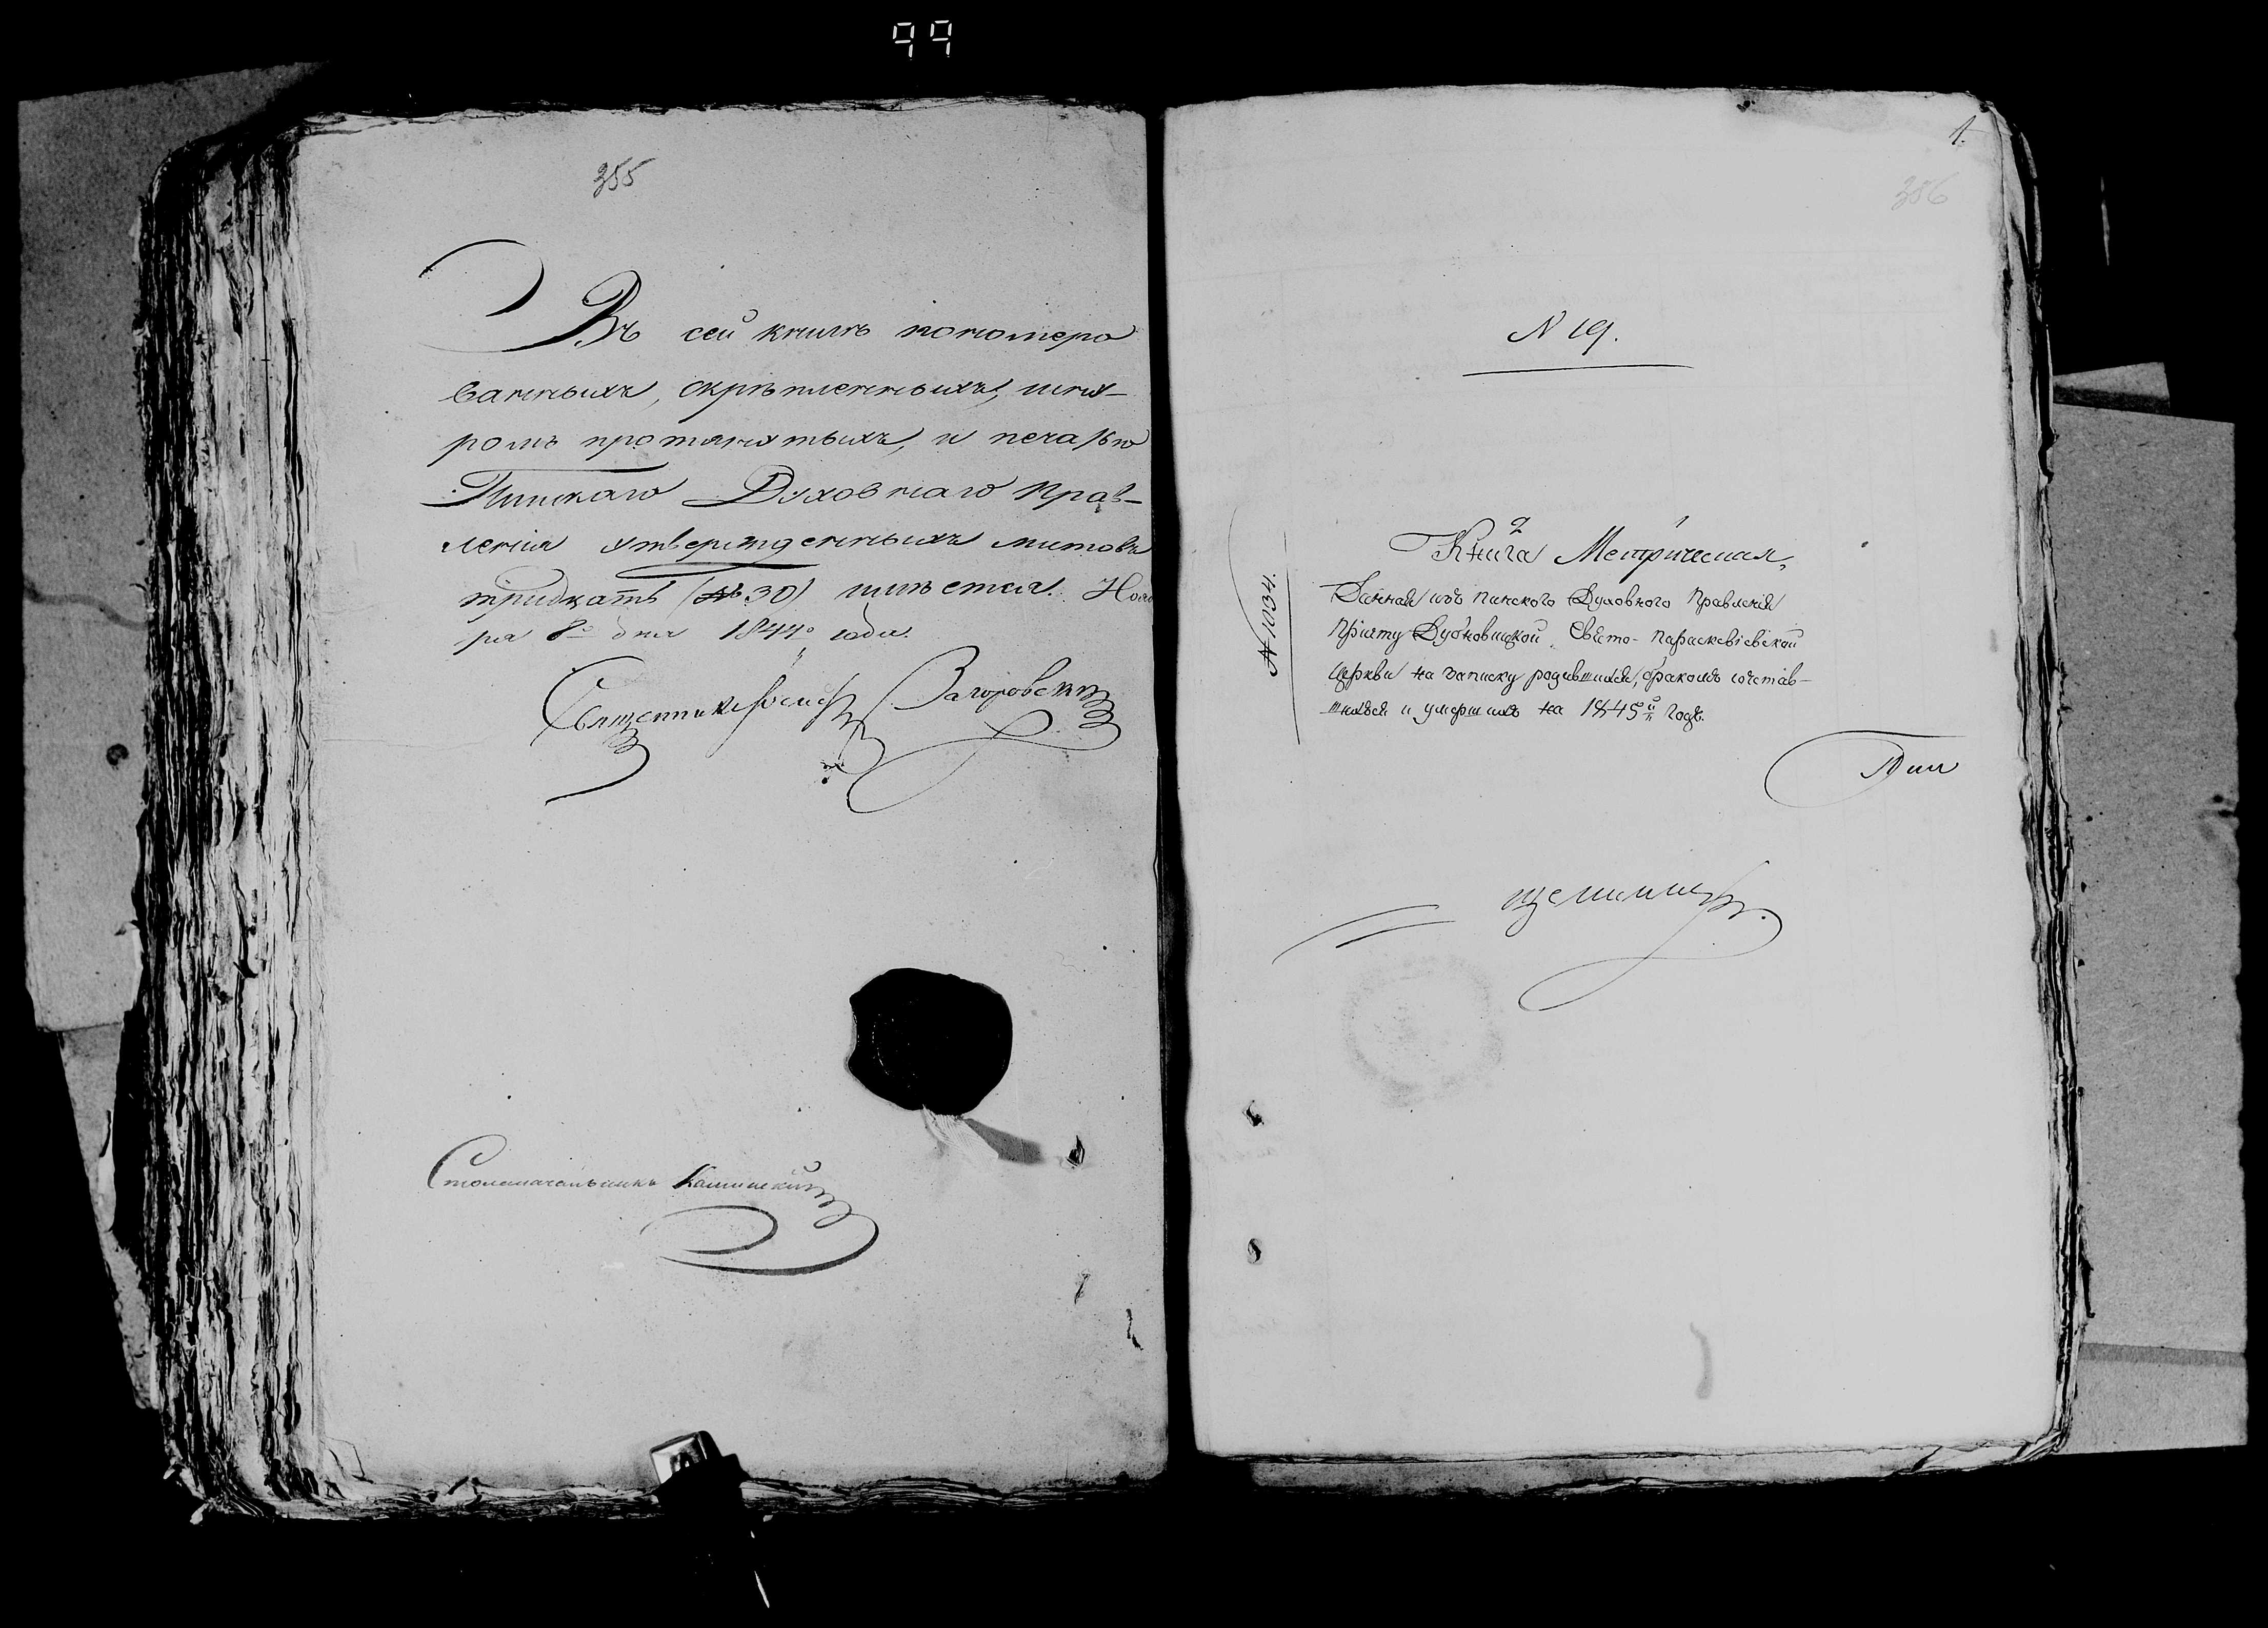 99
355
Въ сей книгѣ пономеро
ванныхъ, скрѣпленныхъ, шну-
ромъ протянутыхъ, и печатью
Пинскаго Духовнаго Прав-
ленія утвержденныхъ листовъ
тридцать (№ 30) имѣется. Нояб
ря 8го дня 1844го года.
Священникъ Загоровскій
Столоначальникъ
1.
356
N 19.
N 1034.
Книга Метрическая,
Данная изъ Пинского Духовного Правленія
Причту Дубновицкой Свято-Параскевіевской
Церкви на записку родившихся, бракомъ сочетав-
шихся и умершихъ на 1845й годъ.